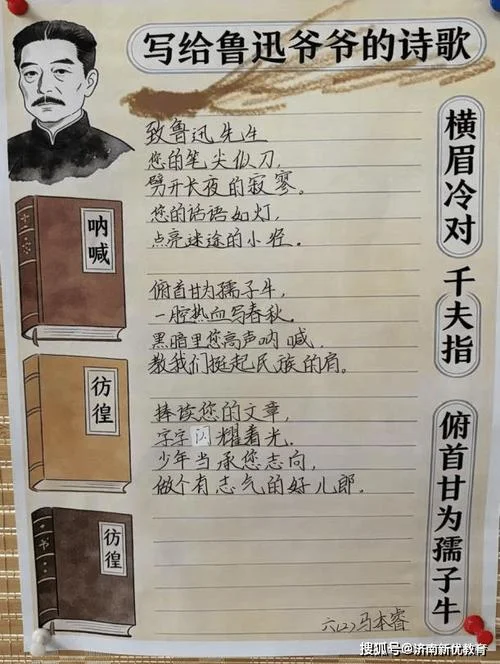 写给鲁迅爷爷的诗歌
致鲁迅先生
您的笔尖似刀,
劈开长夜的寂寥。
您的话语如灯,
点亮迷途的小径。
俯首甘为孺子牛,
一腔热血写春秋。
黑暗里您高声呐喊,
教我们挺起民族的肩。
捧读您的文章,
字字闪耀着光。
少年当承您志向,
做个有志气的好儿郎.
六(2)马本睿
呐喊
彷徨
彷徨
横眉冷对
千夫指
俯首甘为孺子牛
搜狐号@济南新优教育